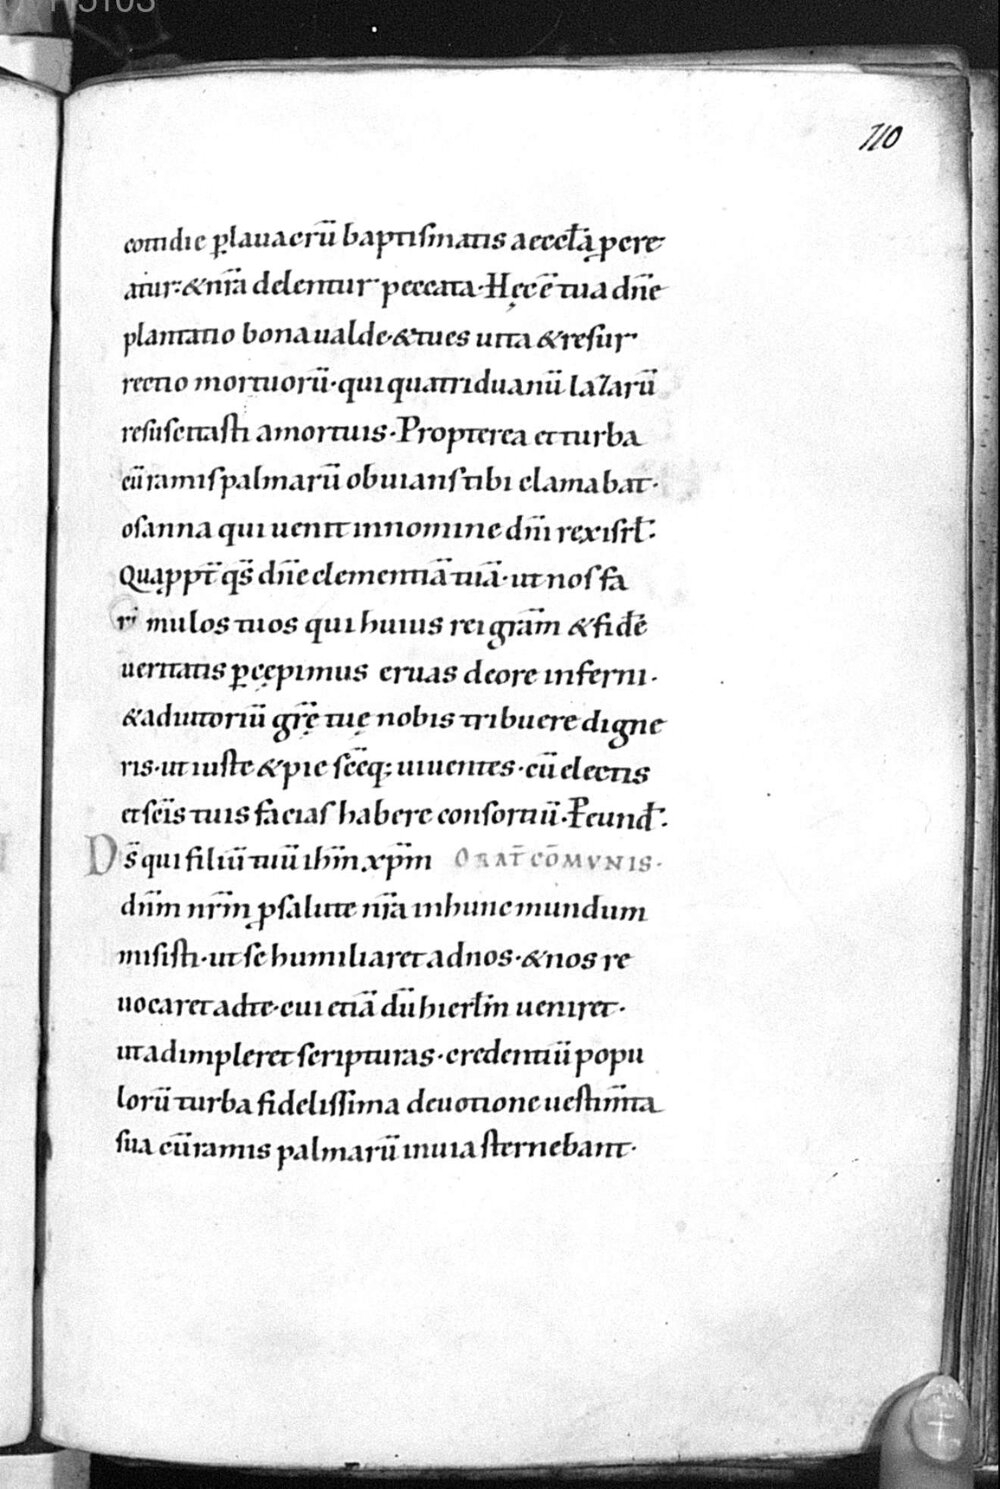 110
cottidie ꝑ lauacrū baptismatis aeccłā ꝑcre
atur: & nr̄a delentur peccata. Hęc ē tua dn̄e
plantatio bona ualde. & tu es uita & resur
rectio mortuorū. qui quatriduanū lazarū
resuscitasti a mortuis. Propterea et turba
cū ramis palmarū obuians tibi clamabat.
osanna qui uenit in nomine dn̄i rex isrł.
Quaꝓpt̄ qs̄ dn̄e clementiā tuā. ut nos fa
mulos tuos qui huius rei gr̄am & fidē
ueritatis ꝑcępimus eruas de ore inferni.
& adiutoriū gr̄ę tuę nobis tribuere digne
ris. ut iuste & pie sc̄eq; uiuentes. cū electis
et sc̄is tuis facias habere consortiū. P̄ eund̄.
Ds̄ qui filiū tuū ih̄m xp̄m ORAT̄ CŌMVNIS.
dn̄m nr̄m ꝓ salute nr̄a in hunc mundum
misisti. ut se humiliaret ad nos. & nos re
uocaret ad te. cui etiā dū hierłm ueniret.
ut adimpleret scripturas. credentiū popu
lorū turba fidelissima deuotione uestim̄ta
sua cū ramis palmarū in uia sternebant.